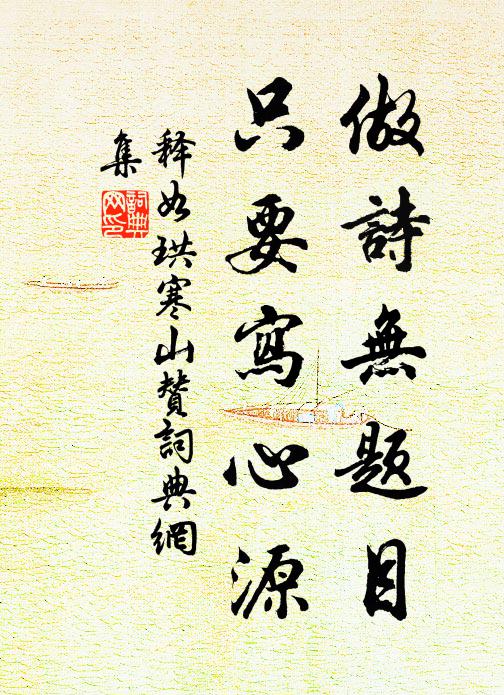 做詩無題目
只要寫心源
释如珙寒山贊詞典網
集
詞典
网印